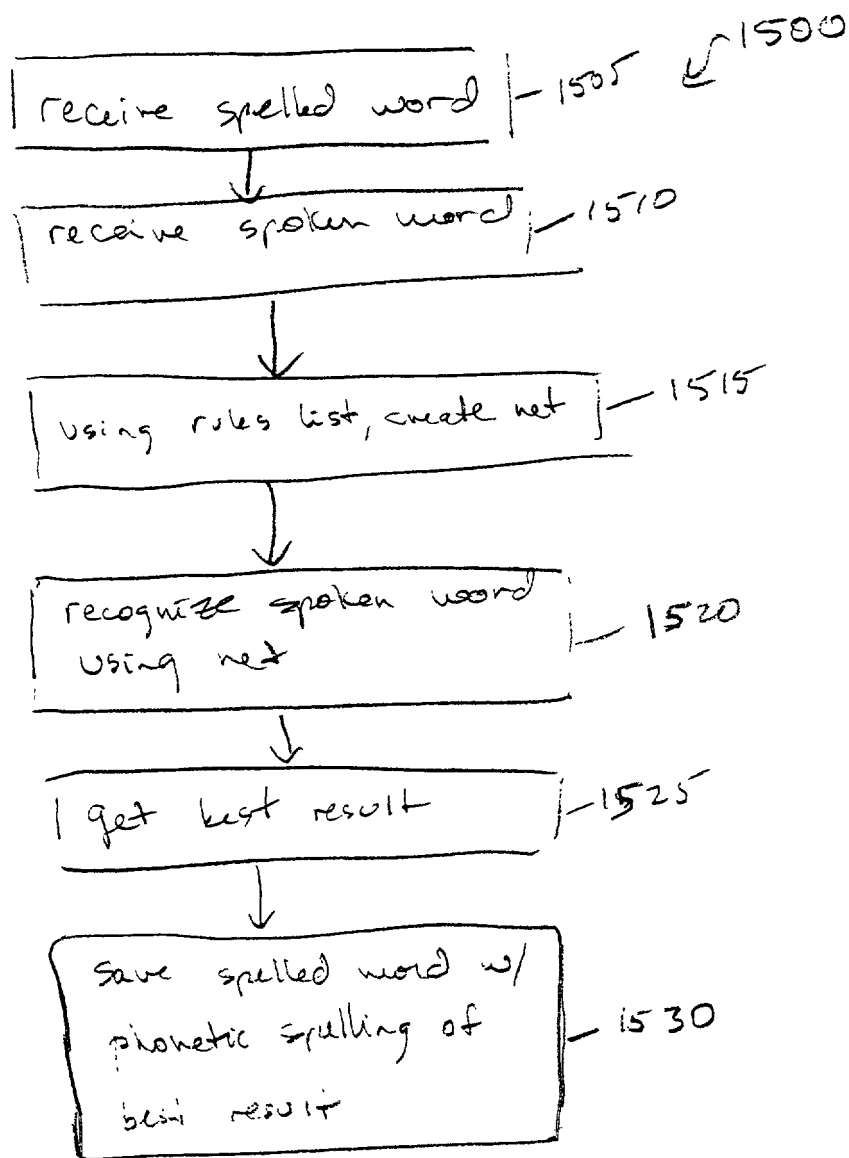 1500
receive spelled word
1505
receive spoken word
1510
using rules list, create net
1515
recognize spoken word
using net
1520
get best result
1525
save spelled word w/
phonetic spelling of
best result
1530